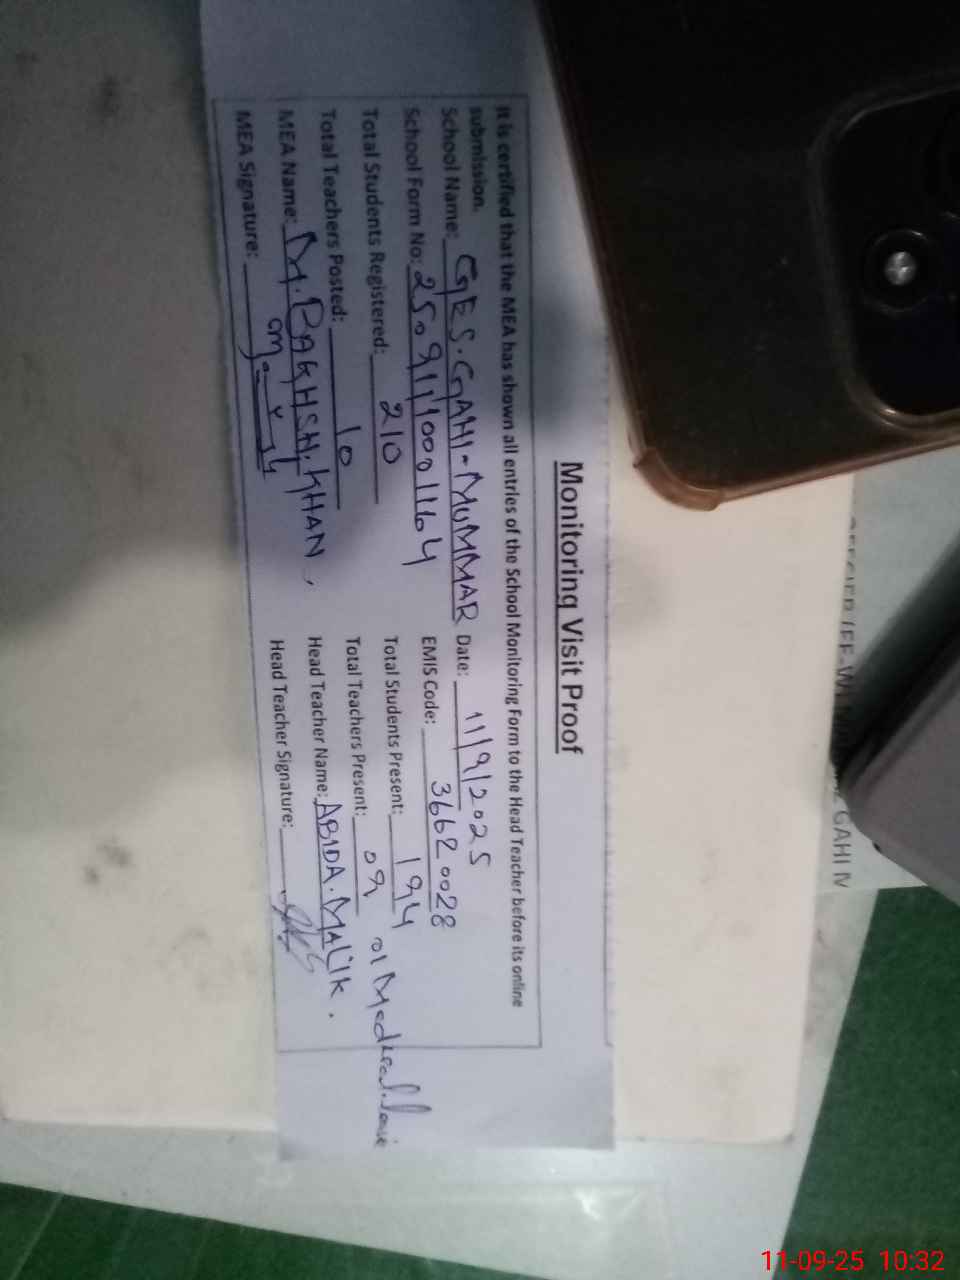 Monitoring Visit Proof
It is certified that the MEA has shown all entries of the School Monitoring Form to the Head Teacher before its online
submission.
School Name: GES.GAHI-MUMMAR Date: 11/9/2025
School Form No: 25091110001164 EMIS Code: 36620028
Total Students Registered: 210 Total Students Present: 194
Total Teachers Posted: 10 Total Teachers Present: 09 01 Medical
MEA Name: M.BAKHSH.KHAN Head Teacher Name: ABIDA.MALIK.
MEA Signature: Head Teacher Signature:
GAHI
11-09-25 10:32